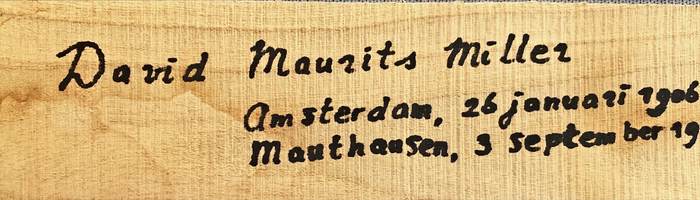 David Maurits Miller
Amsterdam, 26 januari 1906
Mauthausen, 3 september 19